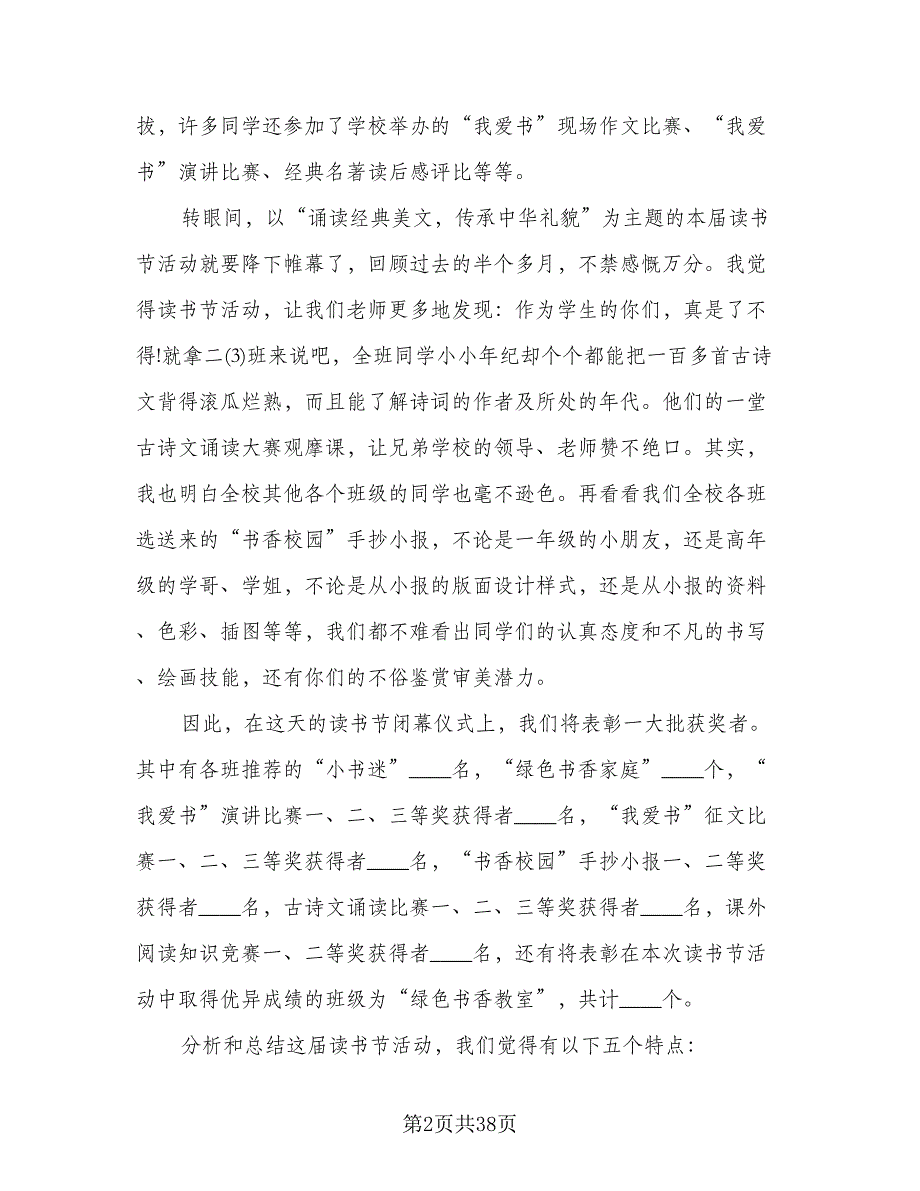 拔，许多同学还参加了学校举办的“我爱书”现场作文比赛、“我爱
书”演讲比赛、经典名著读后感评比等等。
转眼间，以“诵读经典美文，传承中华礼貌”为主题的本届读书
节活动就要降下帷幕了，回顾过去的半个多月，不禁感慨万分。我觉
得读书节活动，让我们老师更多地发现：作为学生的你们，真是了不
得!就拿二(3)班来说吧，全班同学小小年纪却个个都能把一百多首古诗
文背得滚瓜烂熟，而且能了解诗词的作者及所处的年代。他们的一堂
古诗文诵读大赛观摩课，让兄弟学校的领导、老师赞不绝口。其实，
我也明白全校其他各个班级的同学也毫不逊色。再看看我们全校各班
选送来的“书香校园”手抄小报，不论是一年级的小朋友，还是高年
级的学哥、学姐，不论是从小报的版面设计样式，还是从小报的资料
、色彩、插图等等，我们都不难看出同学们的认真态度和不凡的书写
、绘画技能，还有你们的不俗鉴赏审美潜力。
因此，在这天的读书节闭幕仪式上，我们将表彰一大批获奖者。
其中有各班推荐的“小书迷”____名，“绿色书香家庭”____个，“
我爱书”演讲比赛一、二、三等奖获得者____名，“我爱书”征文比
赛一、二、三等奖获得者____名，“书香校园”手抄小报一、二等奖
获得者____名，古诗文诵读比赛一、二、三等奖获得者____名，课外
阅读知识竞赛一、二等奖获得者____名，还有将表彰在本次读书节活
动中取得优异成绩的班级为“绿色书香教室”，共计____个。
分析和总结这届读书节活动，我们觉得有以下五个特点：
第2页共38页